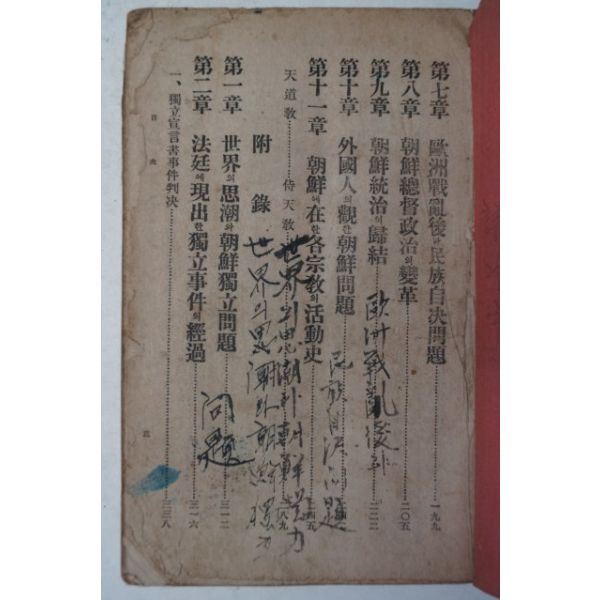 第七章 歐洲戰亂後와民族自決問題 一九九
第八章 朝鮮總督政治의變革 二〇五
第九章 朝鮮統治의歸結 二二二
第十章 外國人의觀한朝鮮問題
第十一章 朝鮮에在한各宗敎의活動史 二四五
天道敎 侍天敎 二八九
附錄
第一章 世界의思潮와朝鮮獨立問題 三一二
第二章 法廷에現出한獨立事件의經過 三一六
一、獨立宣言書事件判決 三三八
目次
歐洲戰亂後와
民族自決問題
世界의思潮와朝鮮獨力
世界의思潮와朝鮮獨力
問題